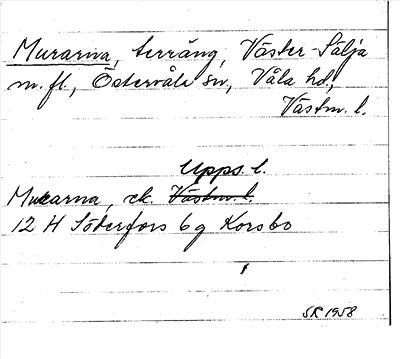 Murarna, terräng, Väster-Sälja
m. fl., Östervåla sn, Våla hd,
Västm. l.
Upps. l.
Murarna, ek. Västm. l.
12 H Söderfors 6g Korsbo
SR 1958